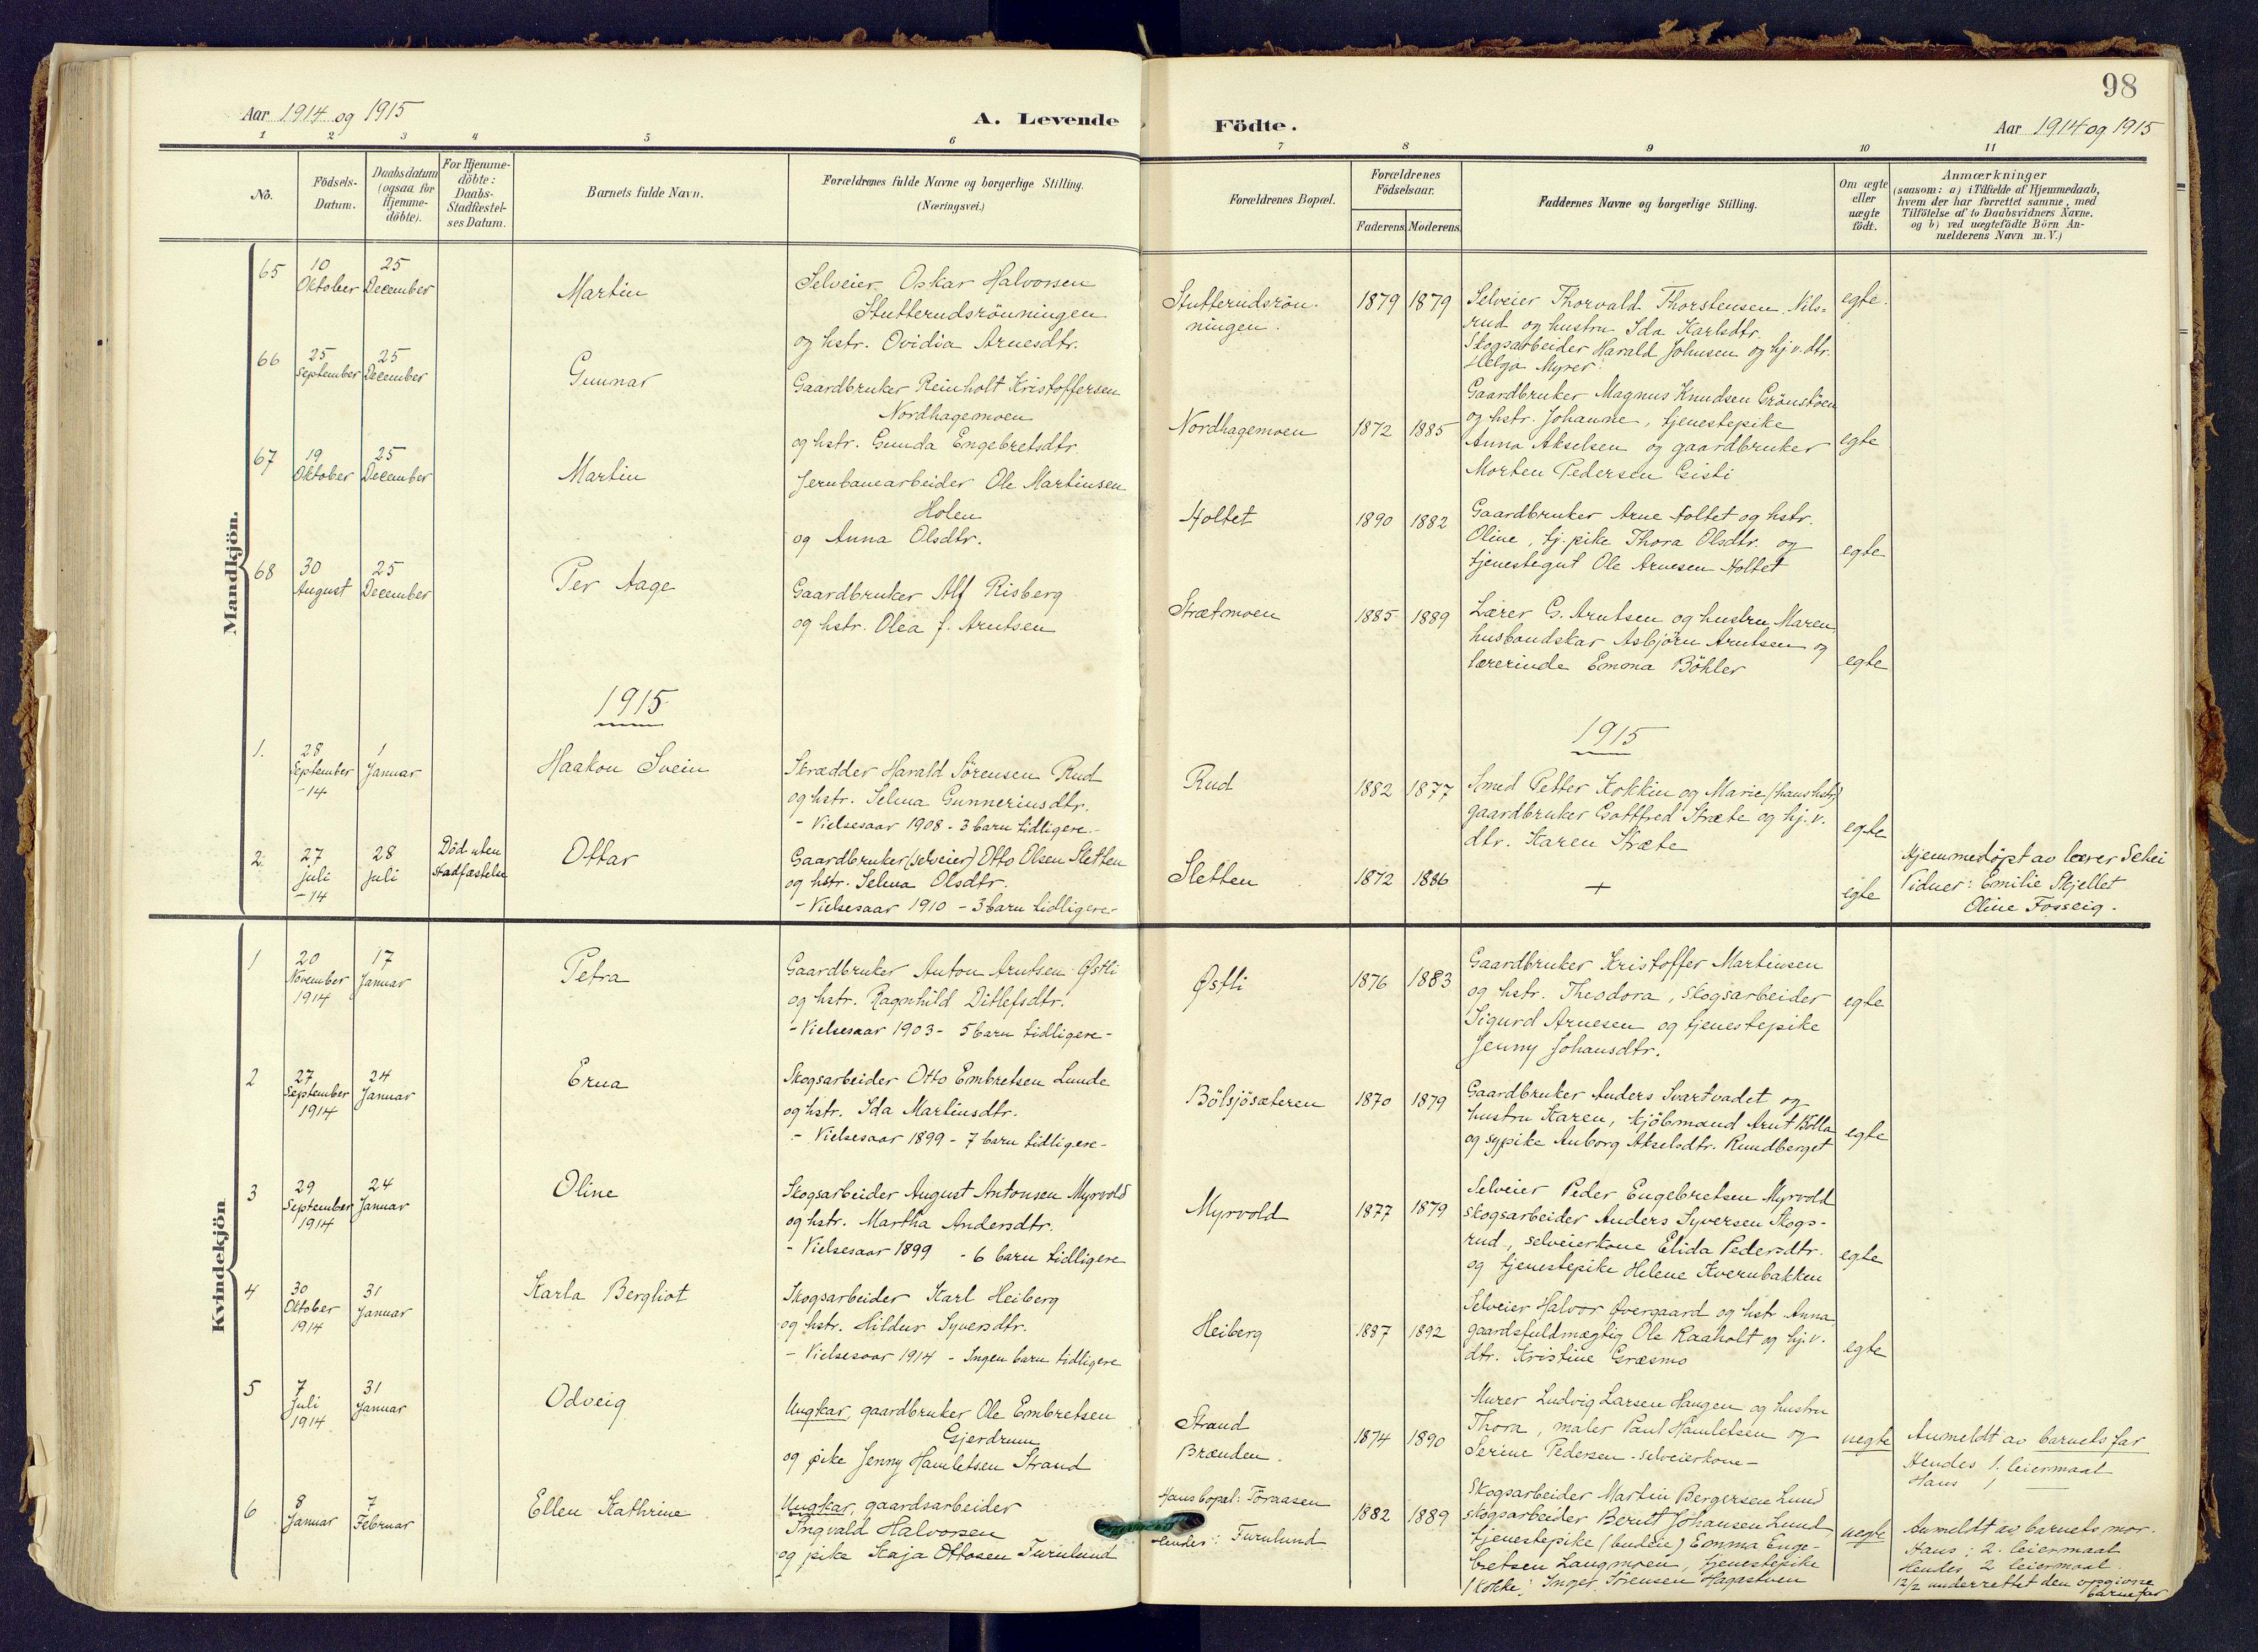 98
Aar 1914 og 1915
A. Levende
Födte.
Aar 1914 og 1915
1 2 3 4 5 6
7 8 9 10 11
No.
Födsels-
Datum.
Daabsdatum
(ogsaa for
Hjemme-
döbte).
For Hjemme-
döbte:
Daabs-
Stadfæstel-
ses Datum.
Barnets fulde Navn.
Forældrenes fulde Navne og borgerlige Stilling.
(Næringsvei.)
Forældrenes Bopæl.
Forældrenes
Födselsaar.
Faderens. Moderens.
Faddernes Navne og borgerlige Stilling.
Om ægte
eller
uægte
födt.
Anmærkninger
(saasom: a) i Tilfælde af Hjemmedaab,
hvem der har forrettet samme, med
Tilföielse af to Daabsvidners Navne.
og b) ved uægtefödte Börn An-
melderens Navn m. V.)
Mandkjön.
65
10
Oktober
25
December
Martin
Selveier Oskar Halvorsen
Stutterudsrönningen
og hstr. Ovidia Arnesdtr.
Stutterudsrön-
ningen.
1879 1879
Selveier Thorvald Thorstensen Nils-
rud og hustru Ida Karlsdtr.
Skogsarbeider Harald Johnsen og hj. v. dtr.
Helga Myrer
egte.
66
25
September
25
December
Gunnar
Gaardbruker Reinholt Kristoffersen
Nordhagemoen
og hstr. Gunda Engebretsdtr.
Nordhagemoen
1872 1885
Gaardbruker Magnus Knudsen Grönstöen
og hstr. Johanne, tjenestepike
Anna Akselsen og gaardbruker
Morten Pedersen Gisti
egte
67
19
Oktober
25
December
Martin
Jernbanearbeider Ole Martinsen
Holen
og Anna Olsdtr.
Holtet
1890 1882
Gaardbruker Arne Holtet og hstr.
Oline, tj. pike Thora Olsdtr. og
tjenestegut Ole Arnesen Holtet
egte
68
30
August
25
December
Per Aage
Gaardbruker Alf Risberg
og hstr. Olea f. Arntsen
Strætmoen
1885 1889
Lærer G. Arntsen og hustru Maren,
husbondskar Asbjörn Arntsen og
lærerinde Emma Böhler
egte
1915
1915
1.
28
September
-14
1
Januar
Haakon Svein
Skrædder Harald Sörensen Rud
og hstr. Selma Gunneriusdtr.
- Vielsesaar 1908 - 3 barn tidligere -
Rud
1882 1877
Smed Petter Kokkin og Marie (hans hstr.)
gaardbruker Gottfred Stræte og hj. v.
dtr. Karen Stræte
egte
2.
27
juli
-14
28
juli
Död uten
stadfæstelse
Ottar
Gaardbruker (selveier) Otto Olsen Sletten
og hstr. Selma Olsdtr.
- Vielsesaar 1910 - 3 barn tidligere -
Sletten
1872 1886
+
egte
Hjemmedöpt av lærer Schei
Vidner: Emilie Skjellet
Oline Fosseig.
Kvindekjön
1
20
November
1914
17
Januar
Petra
Gaardbruker Anton Arntsen Østli
og hstr. Ragnhild Ditlefsdtr.
- Vielsesaar 1903 - 5 barn tidligere -
Østli
1876 1883
Gaardbruker Kristoffer Martinsen
og hstr. Theodora, skogsarbeider
Sigurd Arnesen og tjenestepike
Jenny Johansdtr.
egte
2
27
September
1914
24
Januar
Erna
Skogsarbeider Otto Embretsen Lunde
og hstr. Ida Martinsdtr.
- Vielsesaar 1899 - 7 barn tidligere -
Bölsjösæteren
1870 1879
Gaardbruker Anders Svartvadet og
hustru Karen, kjöbmand Arnt Kölla
og sypike Anborg Akselsdtr. Rundberget
egte
3
29
September
1914
24
Januar
Oline
Skogsarbeider August Antonsen Myrvold
og hstr. Martha Andersdtr.
- Vielsesaar 1899 - 6 barn tidligere
Myrvold
1877 1879
Selveier Peder Engebretsen Myrvold
skogsarbeider Anders Syversen Skogs-
rud, selveierkone Elida Pedersdtr.
og tjenestepike Helene Kvernbakken
egte
4
30
Oktober
1914
31
Januar
Karla Bergliot
Skogsarbeider Karl Heiberg
og hstr. Hildur Syversdtr.
- Vielsesaar 1914 - Ingen barn tidligere
Heiberg
1887 1892
Selveier Halvor Øvergaard og hstr. Anna,
gaardsfuldmægtig Ole Raaholt og hj. v.
dtr. Kristine Græsmo
egte
5
7
Juli
1914
31
Januar
Odveig
Ungkar, gaardbruker Ole Embretsen
Gjerdrum
og pike Jenny Hamletsen Strand
Strand
Brænden.
1874 1890
Murer Ludvig Larsen Haugen og hustru
Thora, maler Paul Hamletsen og
Serine Pedersen - selveierkone -
uegte
Anmeldt av barnets far
Hendes 1. leiermaal
Hans 1 —
6
8
Januar
7
Februar
Ellen Kathrine
Ungkar, gaardsarbeider
Ingvald Halvorsen
og pike Kaja Ottosen Furulund
Hans bopæl: Föraasen
Hendes: Furulund
1882 1889
Skogsarbeider Martin Bergersen Lund
skogsarbeider Bernt Johansen Lund,
tjenestepike (budeie) Emma Enge-
bretsen Langmoen, tjenestepike
(kokke) Inger Sörensen Hagastuen
uegte
Anmeldt av barnets mor.
Hans: 2. leiermaal
Hendes 2 leiermaal.
12/2 underrettet den opgivne
barnefar